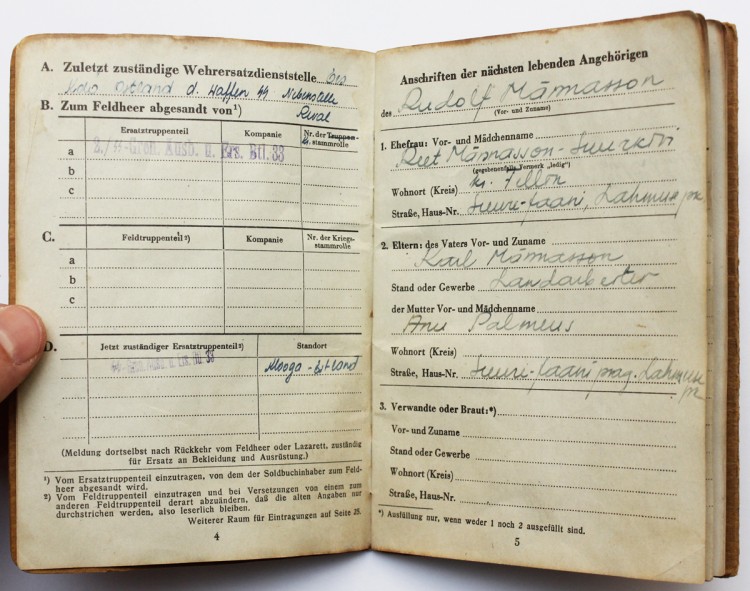 A. Zuletzt zuständige Wehrersatzdienststelle bes
Estland d. Waffen SS Nebenstelle
Reval
B. Zum Feldheer abgesandt von¹)
Ersatztruppenteil Kompanie Nr. der Truppen-
stammrolle
a 2./SS-Gren. Ausb. u. Ers. Btl. 33
b
c
C. Feldtruppenteil²) Kompanie Nr. der Kriegs-
stammrolle
a
b
c
D. Jetzt zuständiger Ersatztruppenteil²) Standort
33 Klooga-Estland
(Meldung dortselbst nach Rückkehr vom Feldheer oder Lazarett, zuständig
für Ersatz an Bekleidung und Ausrüstung.)
¹) Vom Ersatztruppenteil einzutragen, von dem der Soldbuchinhaber zum Feld-
heer abgesandt wird.
²) Vom Feldtruppenteil einzutragen und bei Versetzungen von einem zum
anderen Feldtruppenteil derart abzuändern, daß die alten Angaben nur
durchstrichen werden, also leserlich bleiben.
Weiterer Raum für Eintragungen auf Seite 25.
4
Anschriften der nächsten lebenden Angehörigen
des Rudolf Männasson
(Vor- und Zuname)
1. Ehefrau: Vor- und Mädchenname
Reet Männasson
(gegebenenfalls Vermerk „ledig")
Wohnort (Kreis) Kr. Fellin
Straße, Haus-Nr. Suure-Jaani, Lahmuse
2. Eltern: des Vaters Vor- und Zuname
Karl Männasson
Stand oder Gewerbe Landarbeiter
der Mutter Vor- und Mädchenname
Anu
Wohnort (Kreis)
Straße, Haus-Nr. Suure-Jaani Lahmuse
3. Verwandte oder Braut:*)
Vor- und Zuname
Stand oder Gewerbe
Wohnort (Kreis)
Straße, Haus-Nr.
*) Ausfüllung nur, wenn weder 1 noch 2 ausgefüllt sind.
5